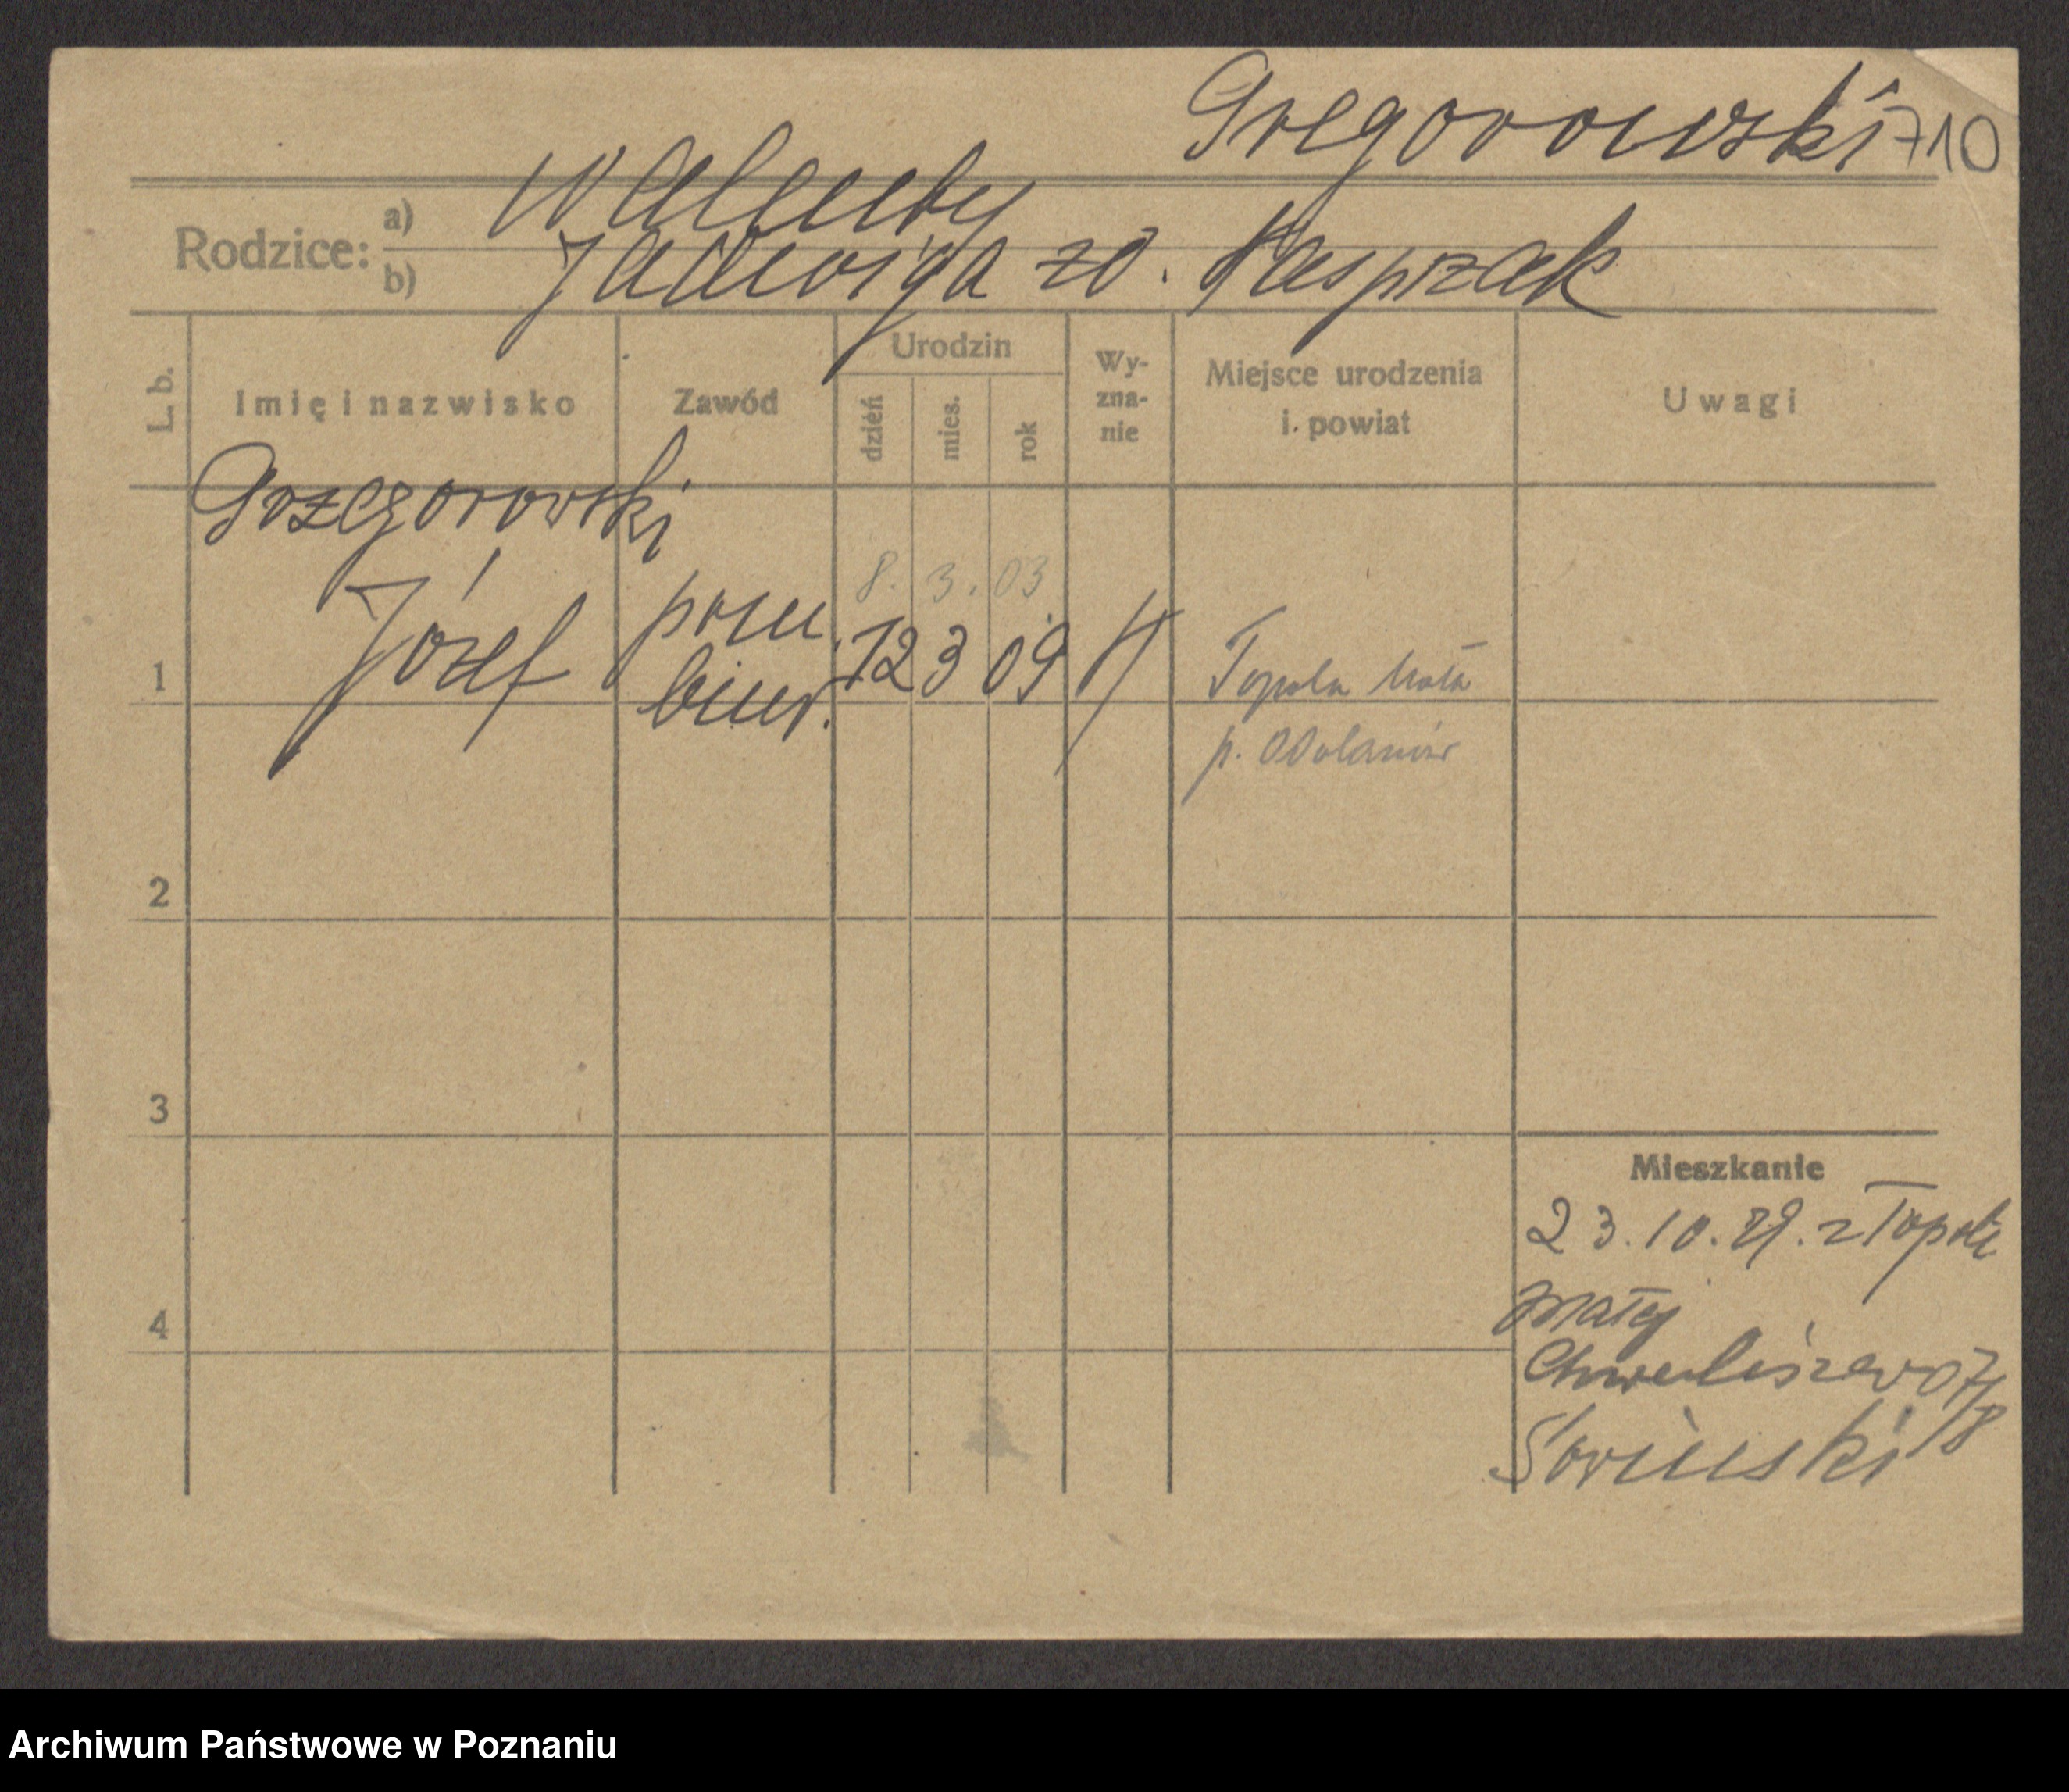 Gregorowski 710
Rodzice: a) Walenty
b) Jadwiga zd. Kasprzak
L. b. Imię i nazwisko Zawód Urodzin dzień mies. rok Wy-zna-nie Miejsce urodzenia i powiat Uwagi
Grzegorowski
8. 3. 03
1 Józef pom. 12 3 09 K Topola Mała
biur. p. Odolanów
2
3
Mieszkanie
23.10.29. z Topoli
Małej
4
Chwaliszewo 71
Soriński /8
Archiwum Państwowe w Poznaniu